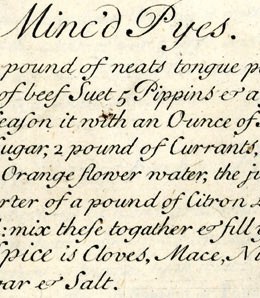 Minc'd Pyes.
pound of neats tongue p
of beef Suet 5 Pippins & a
eason it with an Ounce of
ugar, 2 pound of Currants,
Orange flower water, the ju
rter of a pound of Citron
: mix these togather & fill
pice is Cloves, Mace, Nu
ar & Salt.